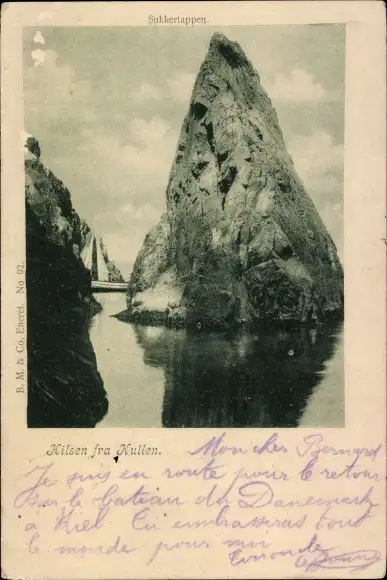 Sukkertappen.
B. M. & Co. Eneret. No 92.
Hilsen fra Kullen.
Mon cher Bernard
Je suis en route pour le retour
sur le bateau du Danemark
à Kiel Tu embrasseras tout
le monde pour moi